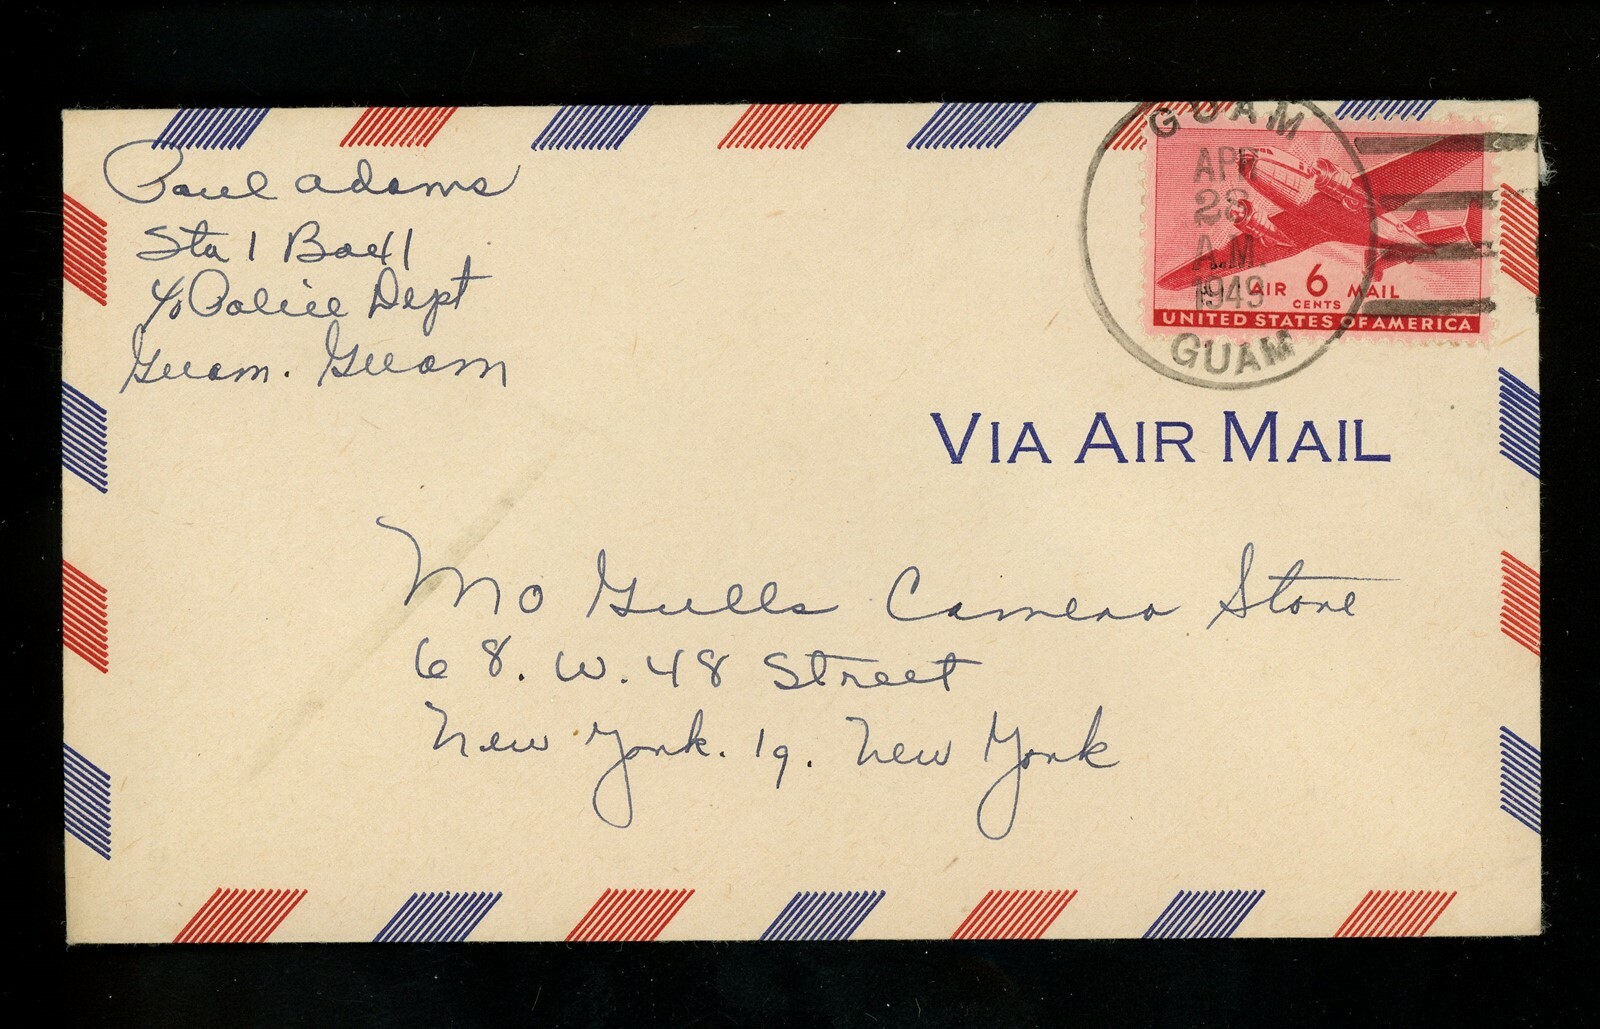 Paul Adams
Sta 1 Box 1
c/o Police Dept
Guam. Guam
GUAM
APR
28
A.M.
1949
GUAM
AIR 6 MAIL
CENTS
UNITED STATES OF AMERICA
VIA AIR MAIL
Mo Gulls Camera Store
68. W. 48 Street
New York. 19. New York